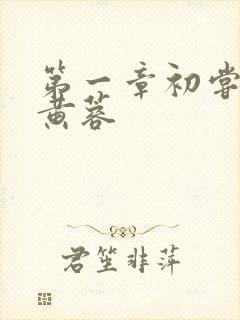 第一章初尝
黄蓉
君坐非萍